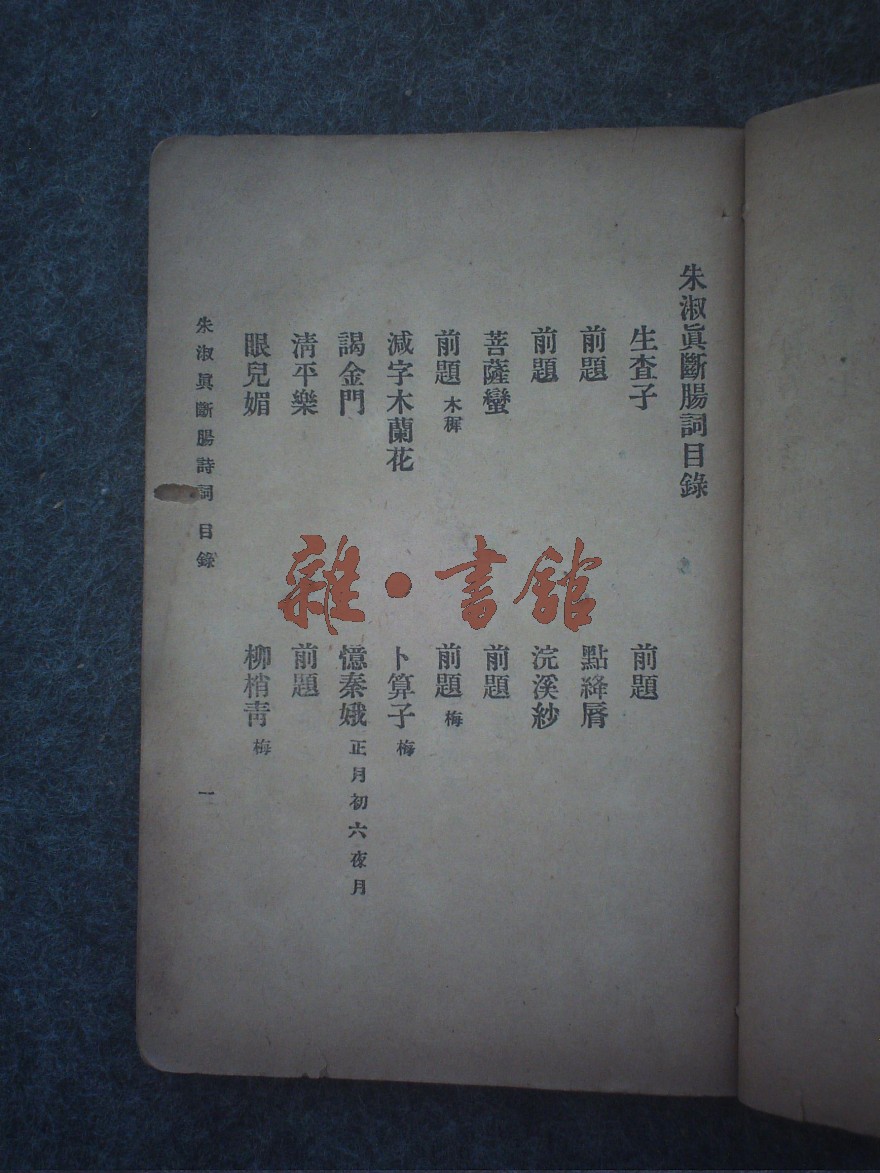 朱淑眞斷腸詞目錄
生査子
前題
前題
點絳脣
前題
浣溪紗
菩薩蠻
前題
前題 木樨
前題 梅
減字木蘭花
卜算子 梅
謁金門
憶秦娥 正月初六夜月
淸平樂
前題
眼兒媚
柳梢靑 梅
朱淑眞斷腸詩詞 目錄
一
雜·書館